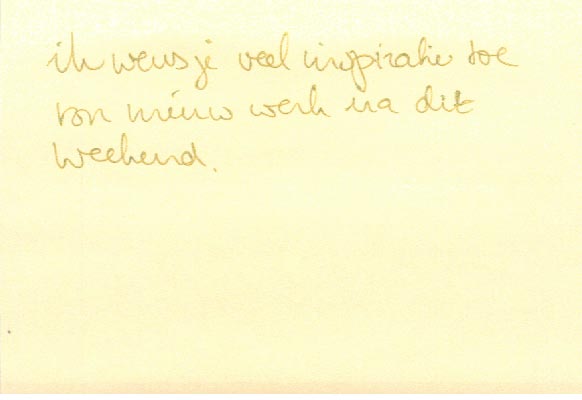 ik wens je veel inspiratie toe
von nieuw werk na dit
weekend.